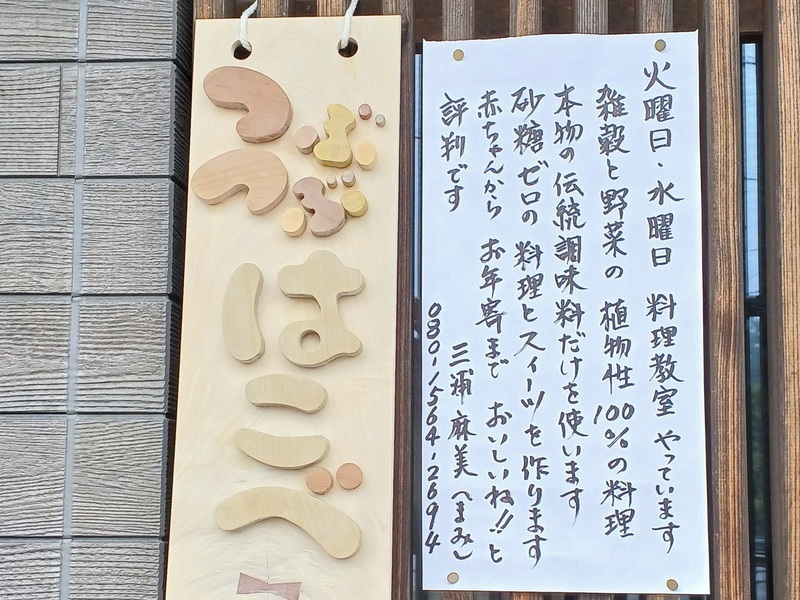 つぶ
つぶ
はこべ
火曜日・水曜日 料理教室 やっています
雑穀と野菜の 植物性100%の料理
本物の伝統調味料だけを使います
砂糖ゼロの 料理とスイーツを作ります
赤ちゃんから お年寄まで おいしいね!!と
評判です
三浦麻美(まみ)
080-1564-2694